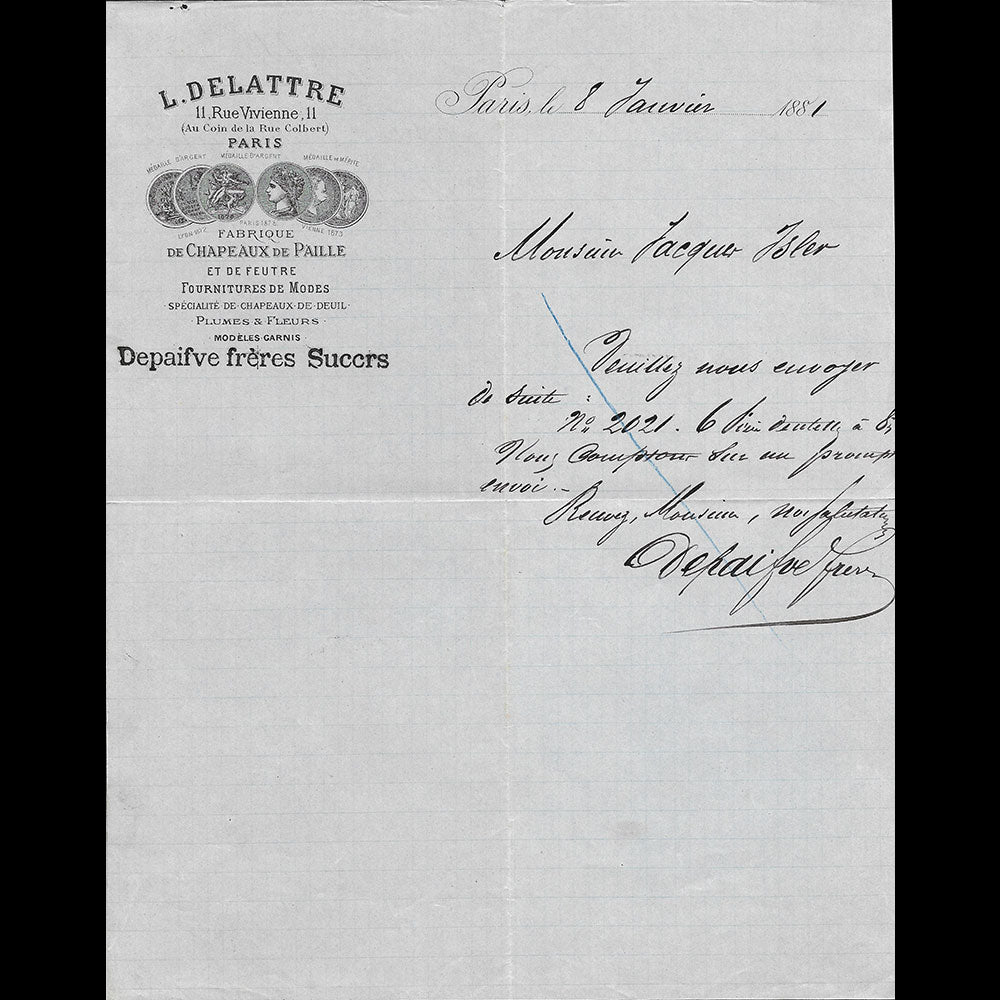 L. DELATTRE
11, Rue Vivienne, 11
(Au Coin de la Rue Colbert)
PARIS
MÉDAILLE D'ARGENT MÉDAILLE D'ARGENT MÉDAILLE DE MÉRITE
LYON 1872 PARIS 1878 VIENNE 1873
FABRIQUE
DE CHAPEAUX DE PAILLE
ET DE FEUTRE
FOURNITURES DE MODES
SPÉCIALITÉ DE CHAPEAUX DE DEUIL
PLUMES & FLEURS
MODÈLES GARNIS
Depaifve frères Succrs
Paris, le 8 Janvier 1881
Monsieur Jacques Isler
Veuillez nous envoyer
de suite :
No 2021. 6 dentelle à
Nous comptons sur un prompt
envoi. -
Recevez, Monsieur, nos salutations
Depaifve frères